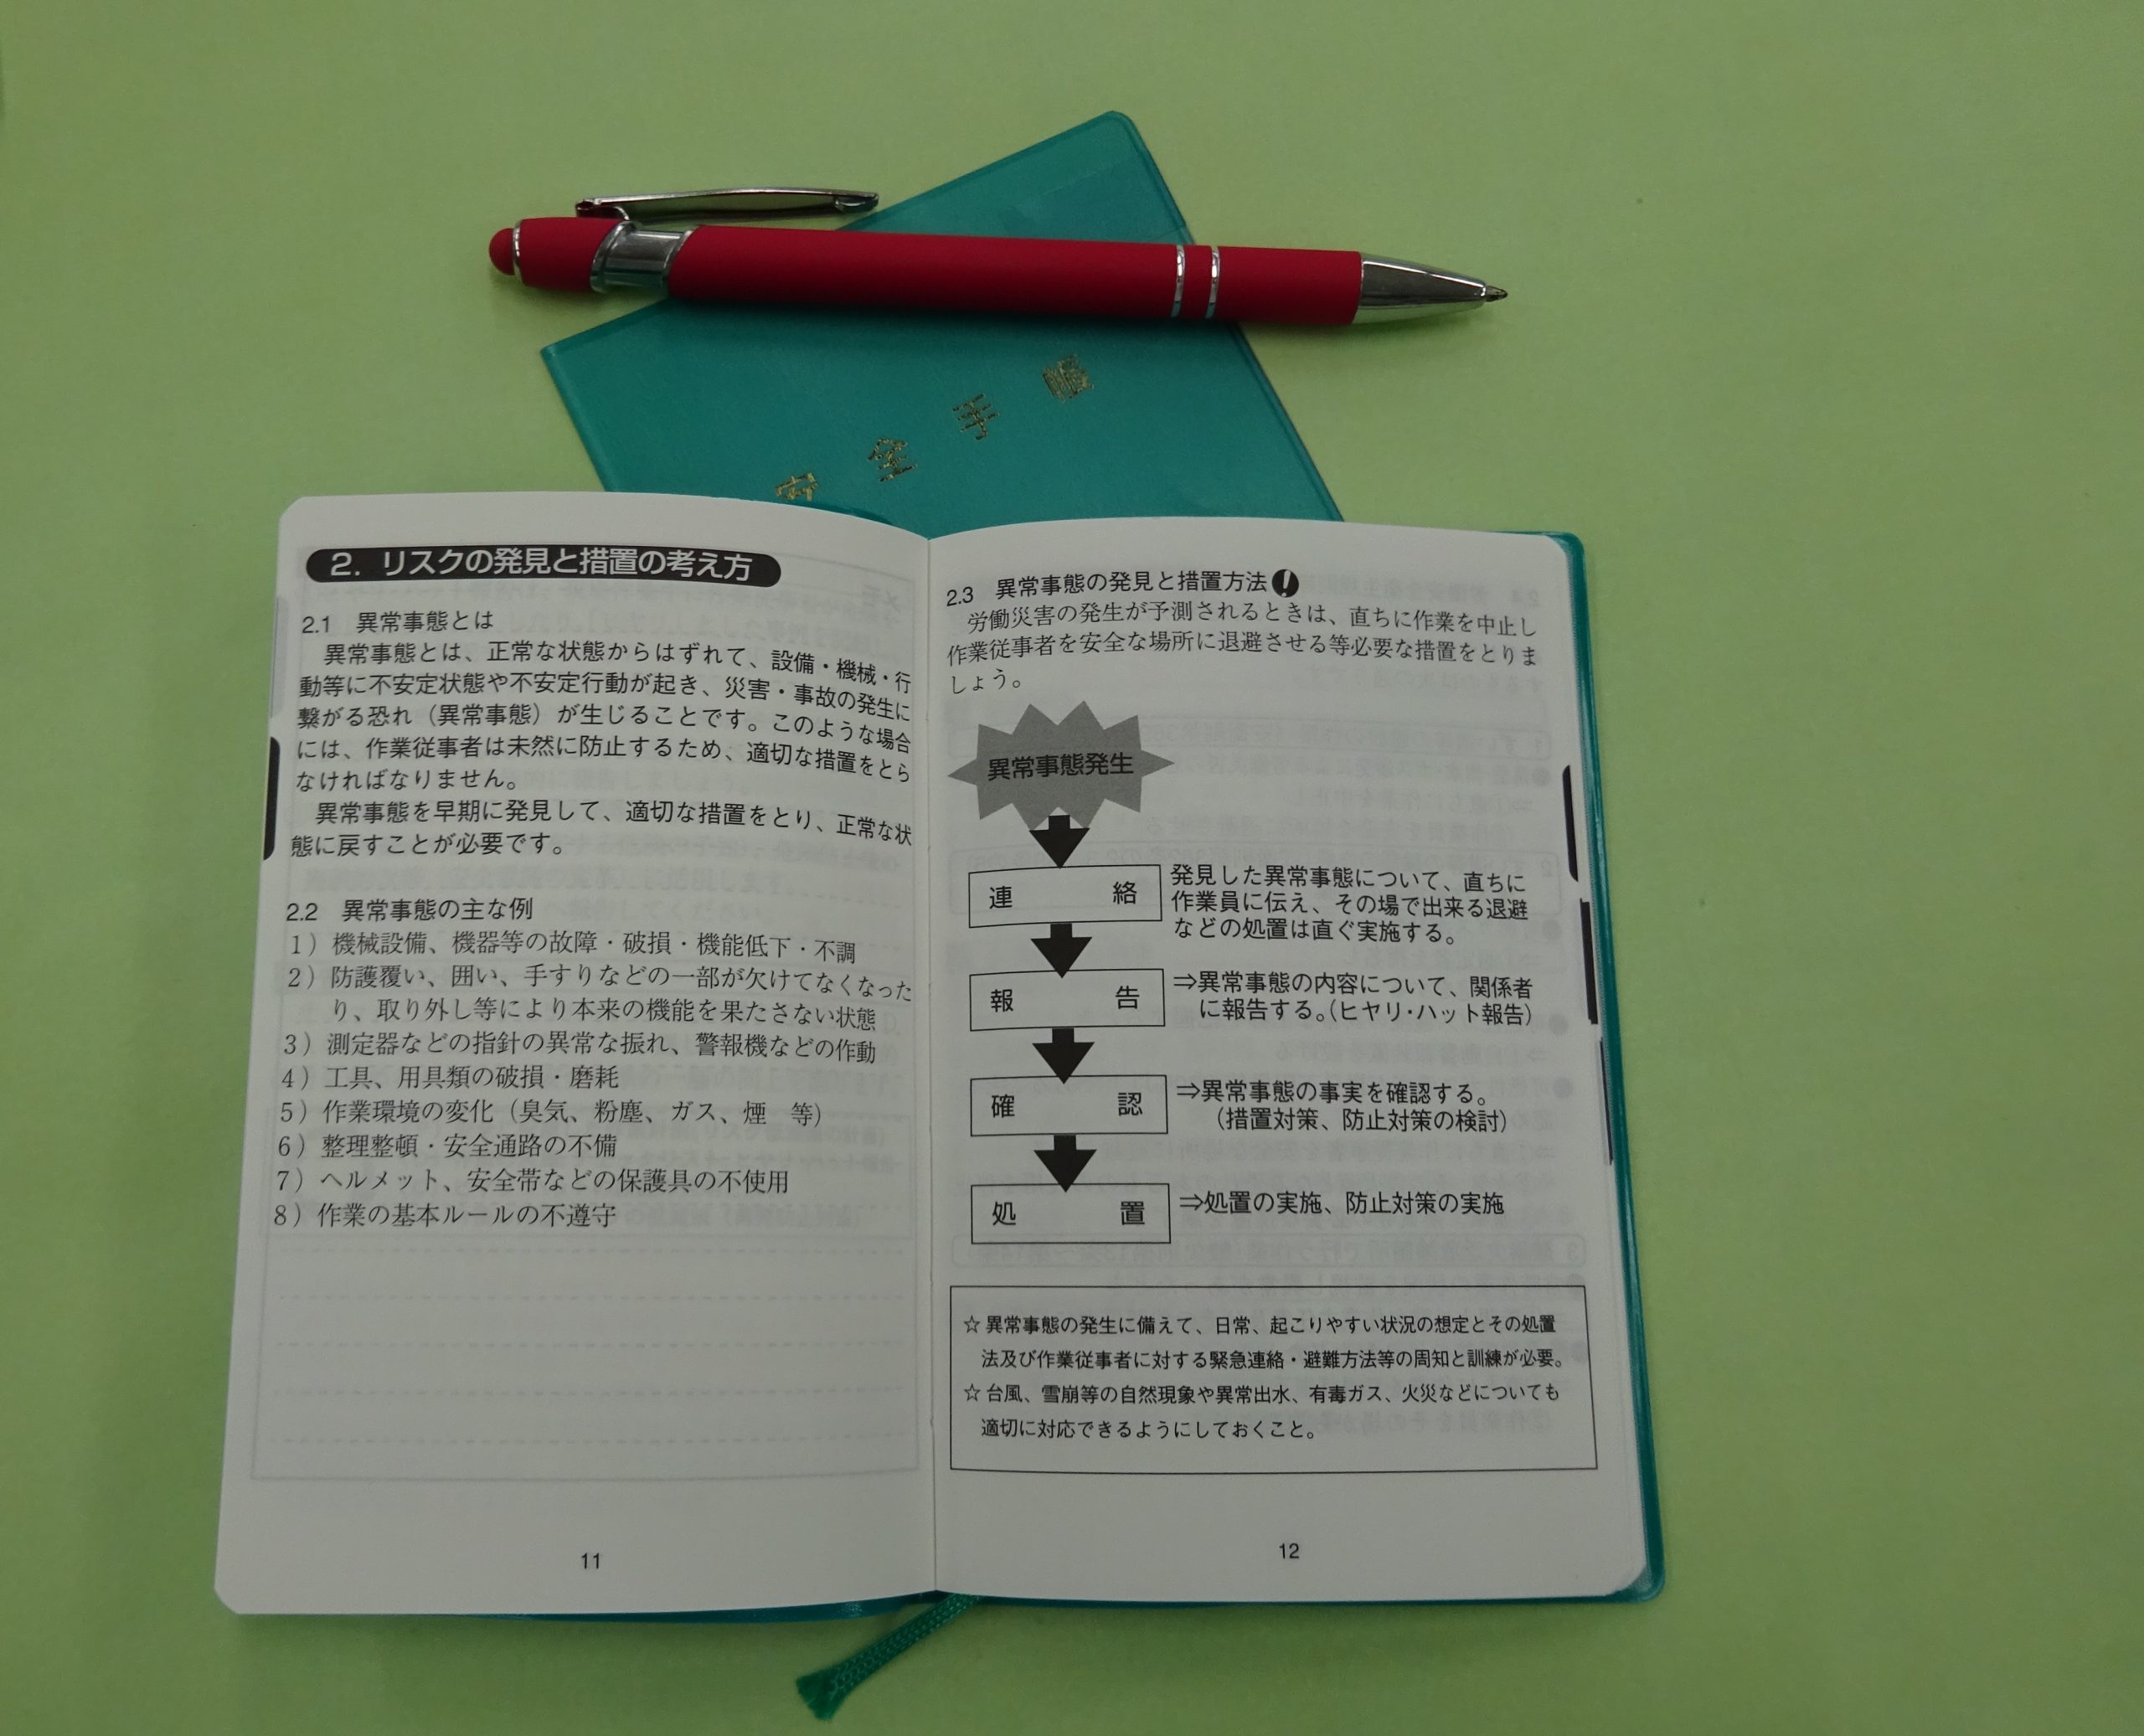 安全手帳
2. リスクの発見と措置の考え方
2.1 異常事態とは
異常事態とは、正常な状態からはずれて、設備・機械・行
動等に不安定状態や不安定行動が起き、災害・事故の発生に
繋がる恐れ（異常事態）が生じることです。このような場合
には、作業従事者は未然に防止するため、適切な措置をとら
なければなりません。
異常事態を早期に発見して、適切な措置をとり、正常な状
態に戻すことが必要です。
2.2 異常事態の主な例
1）機械設備、機器等の故障・破損・機能低下・不調
2）防護覆い、囲い、手すりなどの一部が欠けてなくなった
り、取り外し等により本来の機能を果たさない状態
3）測定器などの指針の異常な振れ、警報機などの作動
4）工具、用具類の破損・磨耗
5）作業環境の変化（臭気、粉塵、ガス、煙 等）
6）整理整頓・安全通路の不備
7）ヘルメット、安全帯などの保護具の不使用
8）作業の基本ルールの不遵守
11
2.3 異常事態の発見と措置方法!
労働災害の発生が予測されるときは、直ちに作業を中止し
作業従事者を安全な場所に退避させる等必要な措置をとりま
しょう。
異常事態発生
連絡
発見した異常事態について、直ちに
作業員に伝え、その場で出来る退避
などの処置は直ぐ実施する。
報告
⇒異常事態の内容について、関係者
に報告する。（ヒヤリ・ハット報告）
確認
⇒異常事態の事実を確認する。
（措置対策、防止対策の検討）
処置
⇒処置の実施、防止対策の実施
☆異常事態の発生に備えて、日常、起こりやすい状況の想定とその処置
法及び作業従事者に対する緊急連絡・避難方法等の周知と訓練が必要。
☆台風、雪崩等の自然現象や異常出水、有毒ガス、火災などについても
適切に対応できるようにしておくこと。
12